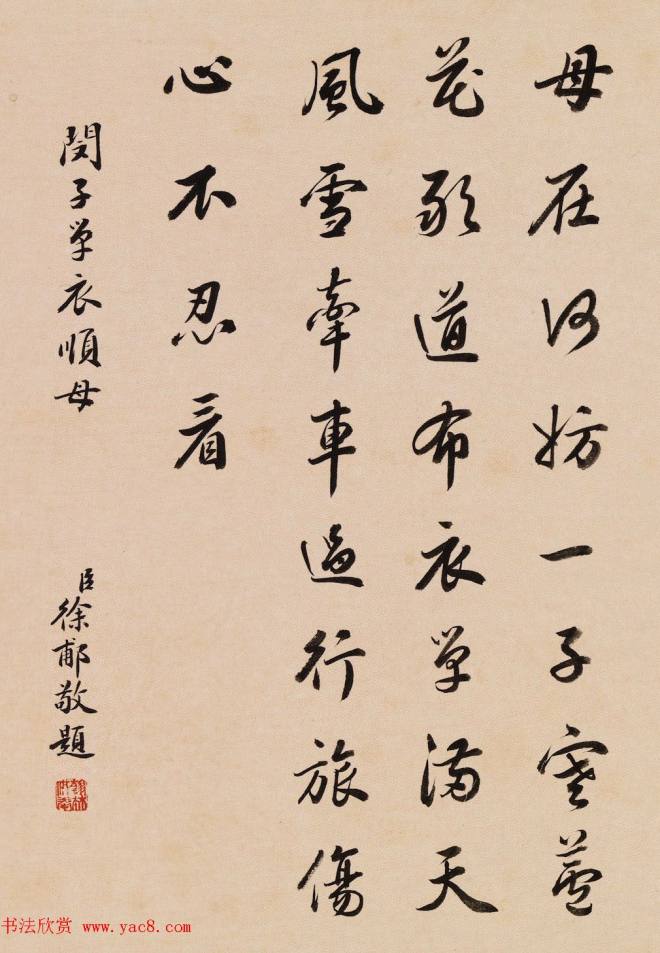 母在何妨一子寒蘆
花敢道布衣單滿天
風雪牽車過行旅傷
心不忍看
閔子單衣順母
臣徐郙敬題
书法欣赏 www.yac8.com